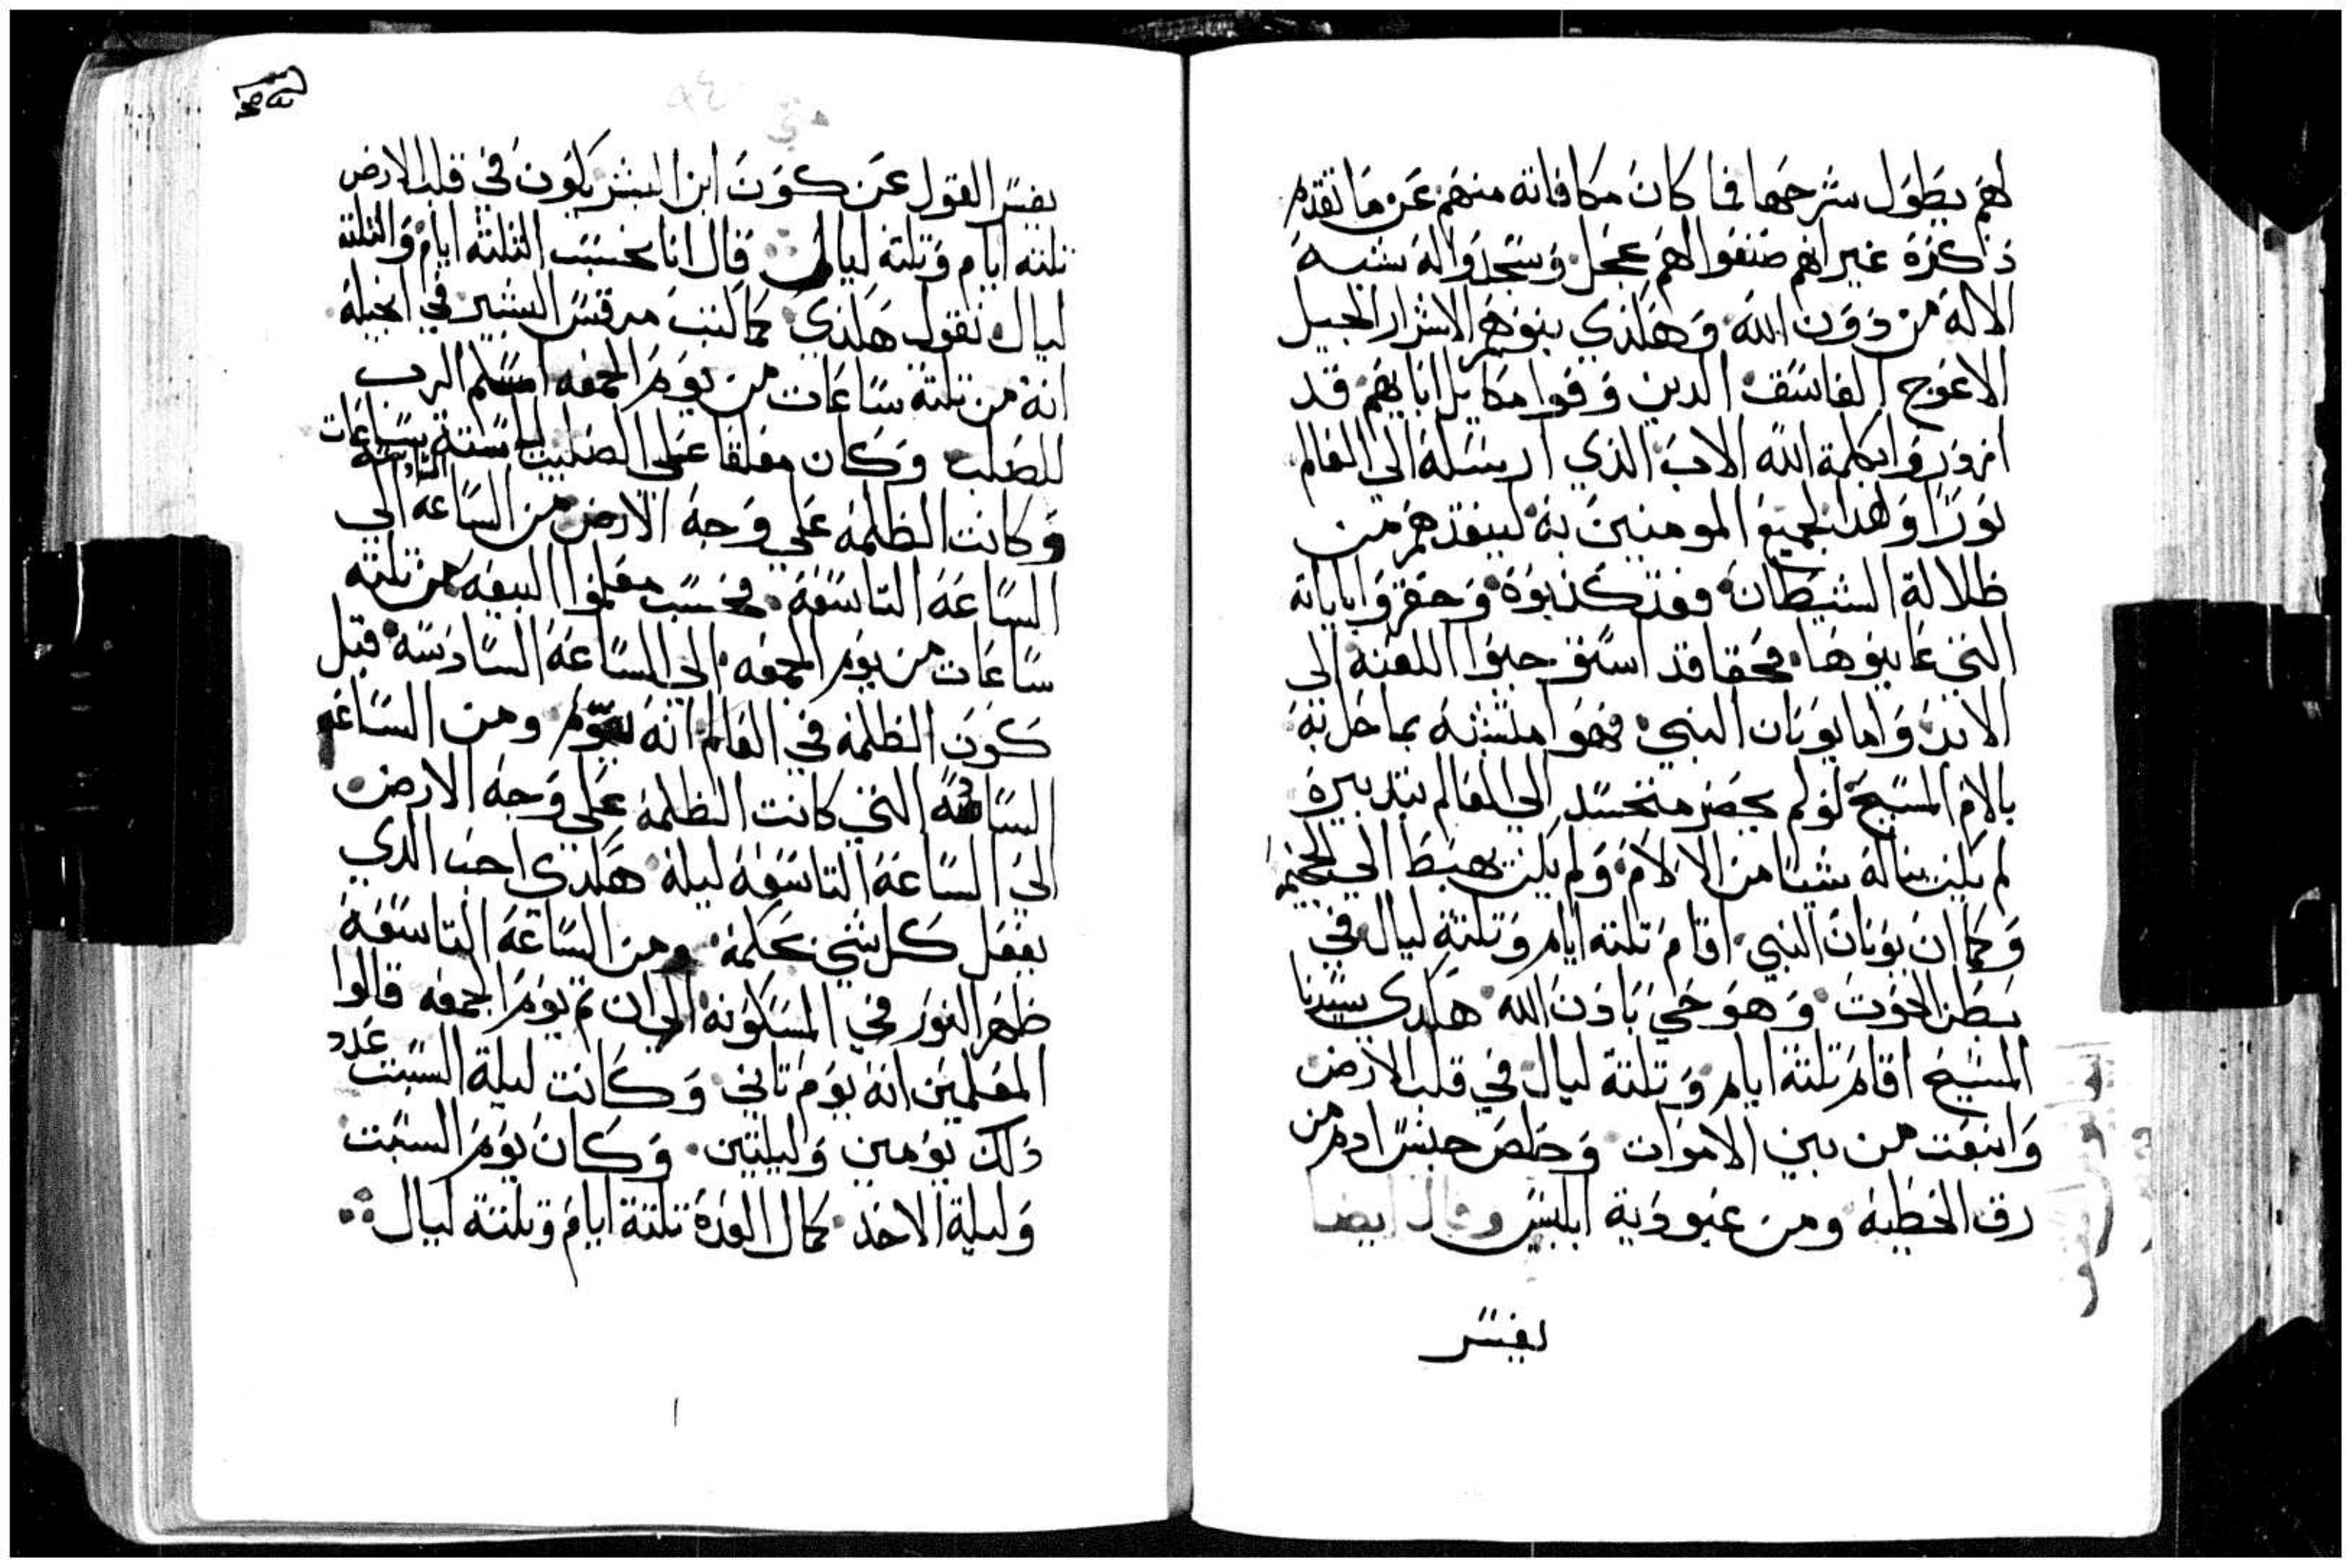 لهم يطول شرحها فما كان مكافاته منهم عن ما تقدم
ذكره غير انهم صنعوا لهم عجل وسجدوا له شبه
الاله من دون الله وهكذي بنوهم الاشرار الجيل
الاعوج الفاسق الدين وفوا مكايل ابايهم قد
ازوروا بكلمة الله الاب الذي ارسله الى العالم
نورا وهدا لجميع المومنين به لينقدهم من
ظلالة الشيطان فقد كذبوه وحقروا باياته
التي عاينوها فحقا قد استوجبوا اللعنه الى
الابد واما يونان النبي فهوا متشبه بما حل به
بالام المسيح لو لم يحضر متجسد الى العالم بتدبيره
لم يكن يناله شيا من الالام ولم يكن يهبط الي الجحيم
وكما ان يونان النبي اقام تلتة ايام وتلتة ليال في
بطن الحوت وهو حي باذن الله هكدى سيدنا
المسيح اقام تلتة ايام وتلتة ليال في قلب الارض
وانبعت من بين الاموات وخلص جنس ادم من
رق الخطيه ومن عبودية ابليس وقال ايضا
يفسر
متي
٩٤
يفسر القول عن كون ابن البشر يكون في قلب الارض
تلتة ايام وتلتة ليالى قال انا نحسب التلتة ايام والتلتة
ليال نقول هكذي كما كتب مرقس البشير في انجيله
انه من تلتة ساعات من يوم الجمعه اسلم الرب
للصلب وكان معلقا على الصليب الى ستة ساعات
وكانت الظلمه على وجه الارض من الساعة السادسة الي
الساعة التاسعة فحسب معلموا البيعه من تلتة
ساعات من يوم الجمعه الى الساعة السادسة قبل
كون الظلمة في العالم انه يوم ومن الساعه
السادسة التي كانت الظلمة على وجه الارض
الى الساعة التاسعة ليلة هكدى احب الدي
يفعل كل شي بحكمة ومن الساعة التاسعة
ظهر النور في المسكونة الى ان تم يوم الجمعه قالوا
المعلمين انه يوم تاني وكانت ليلة السبت عدد
ذلك يومين وليلتين وكان يوم السبت
وليلة الاحد كمال العدة تلتة ايام وتلتة ليال